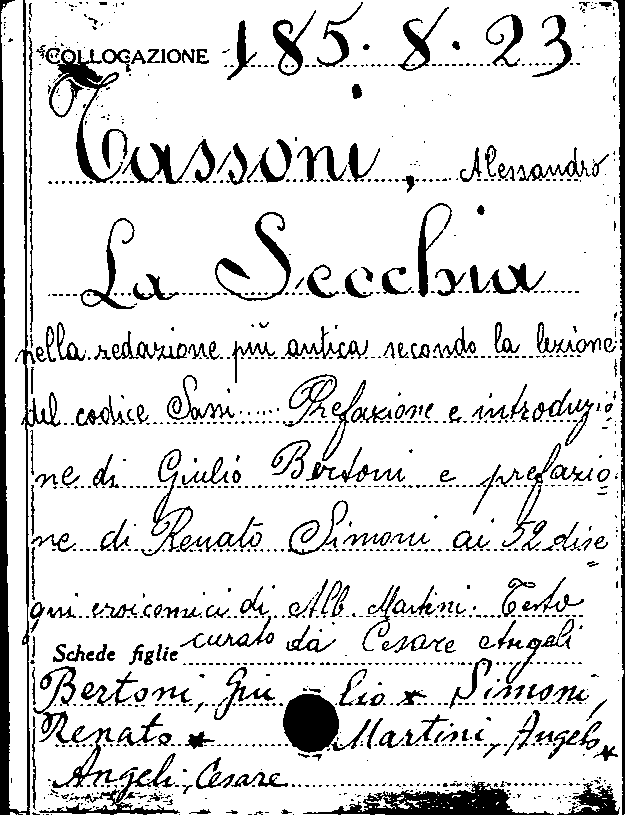 COLLOCAZIONE 185.8.23
Tassoni, Alessandro
La Secchia
nella redazione più antica secondo la lezione
del codice Sassi..... Prefazione e introduzio=
ne di Giulio Bertoni e prefazio=
ne di Renato Simoni ai 52 dise=
gni eroicomici di Alb. Martini. Testo
Schede figlie curato da Cesare Angeli
Bertoni, Giulio * Simoni,
Renato * Martini, Angelo *
Angeli, Cesare